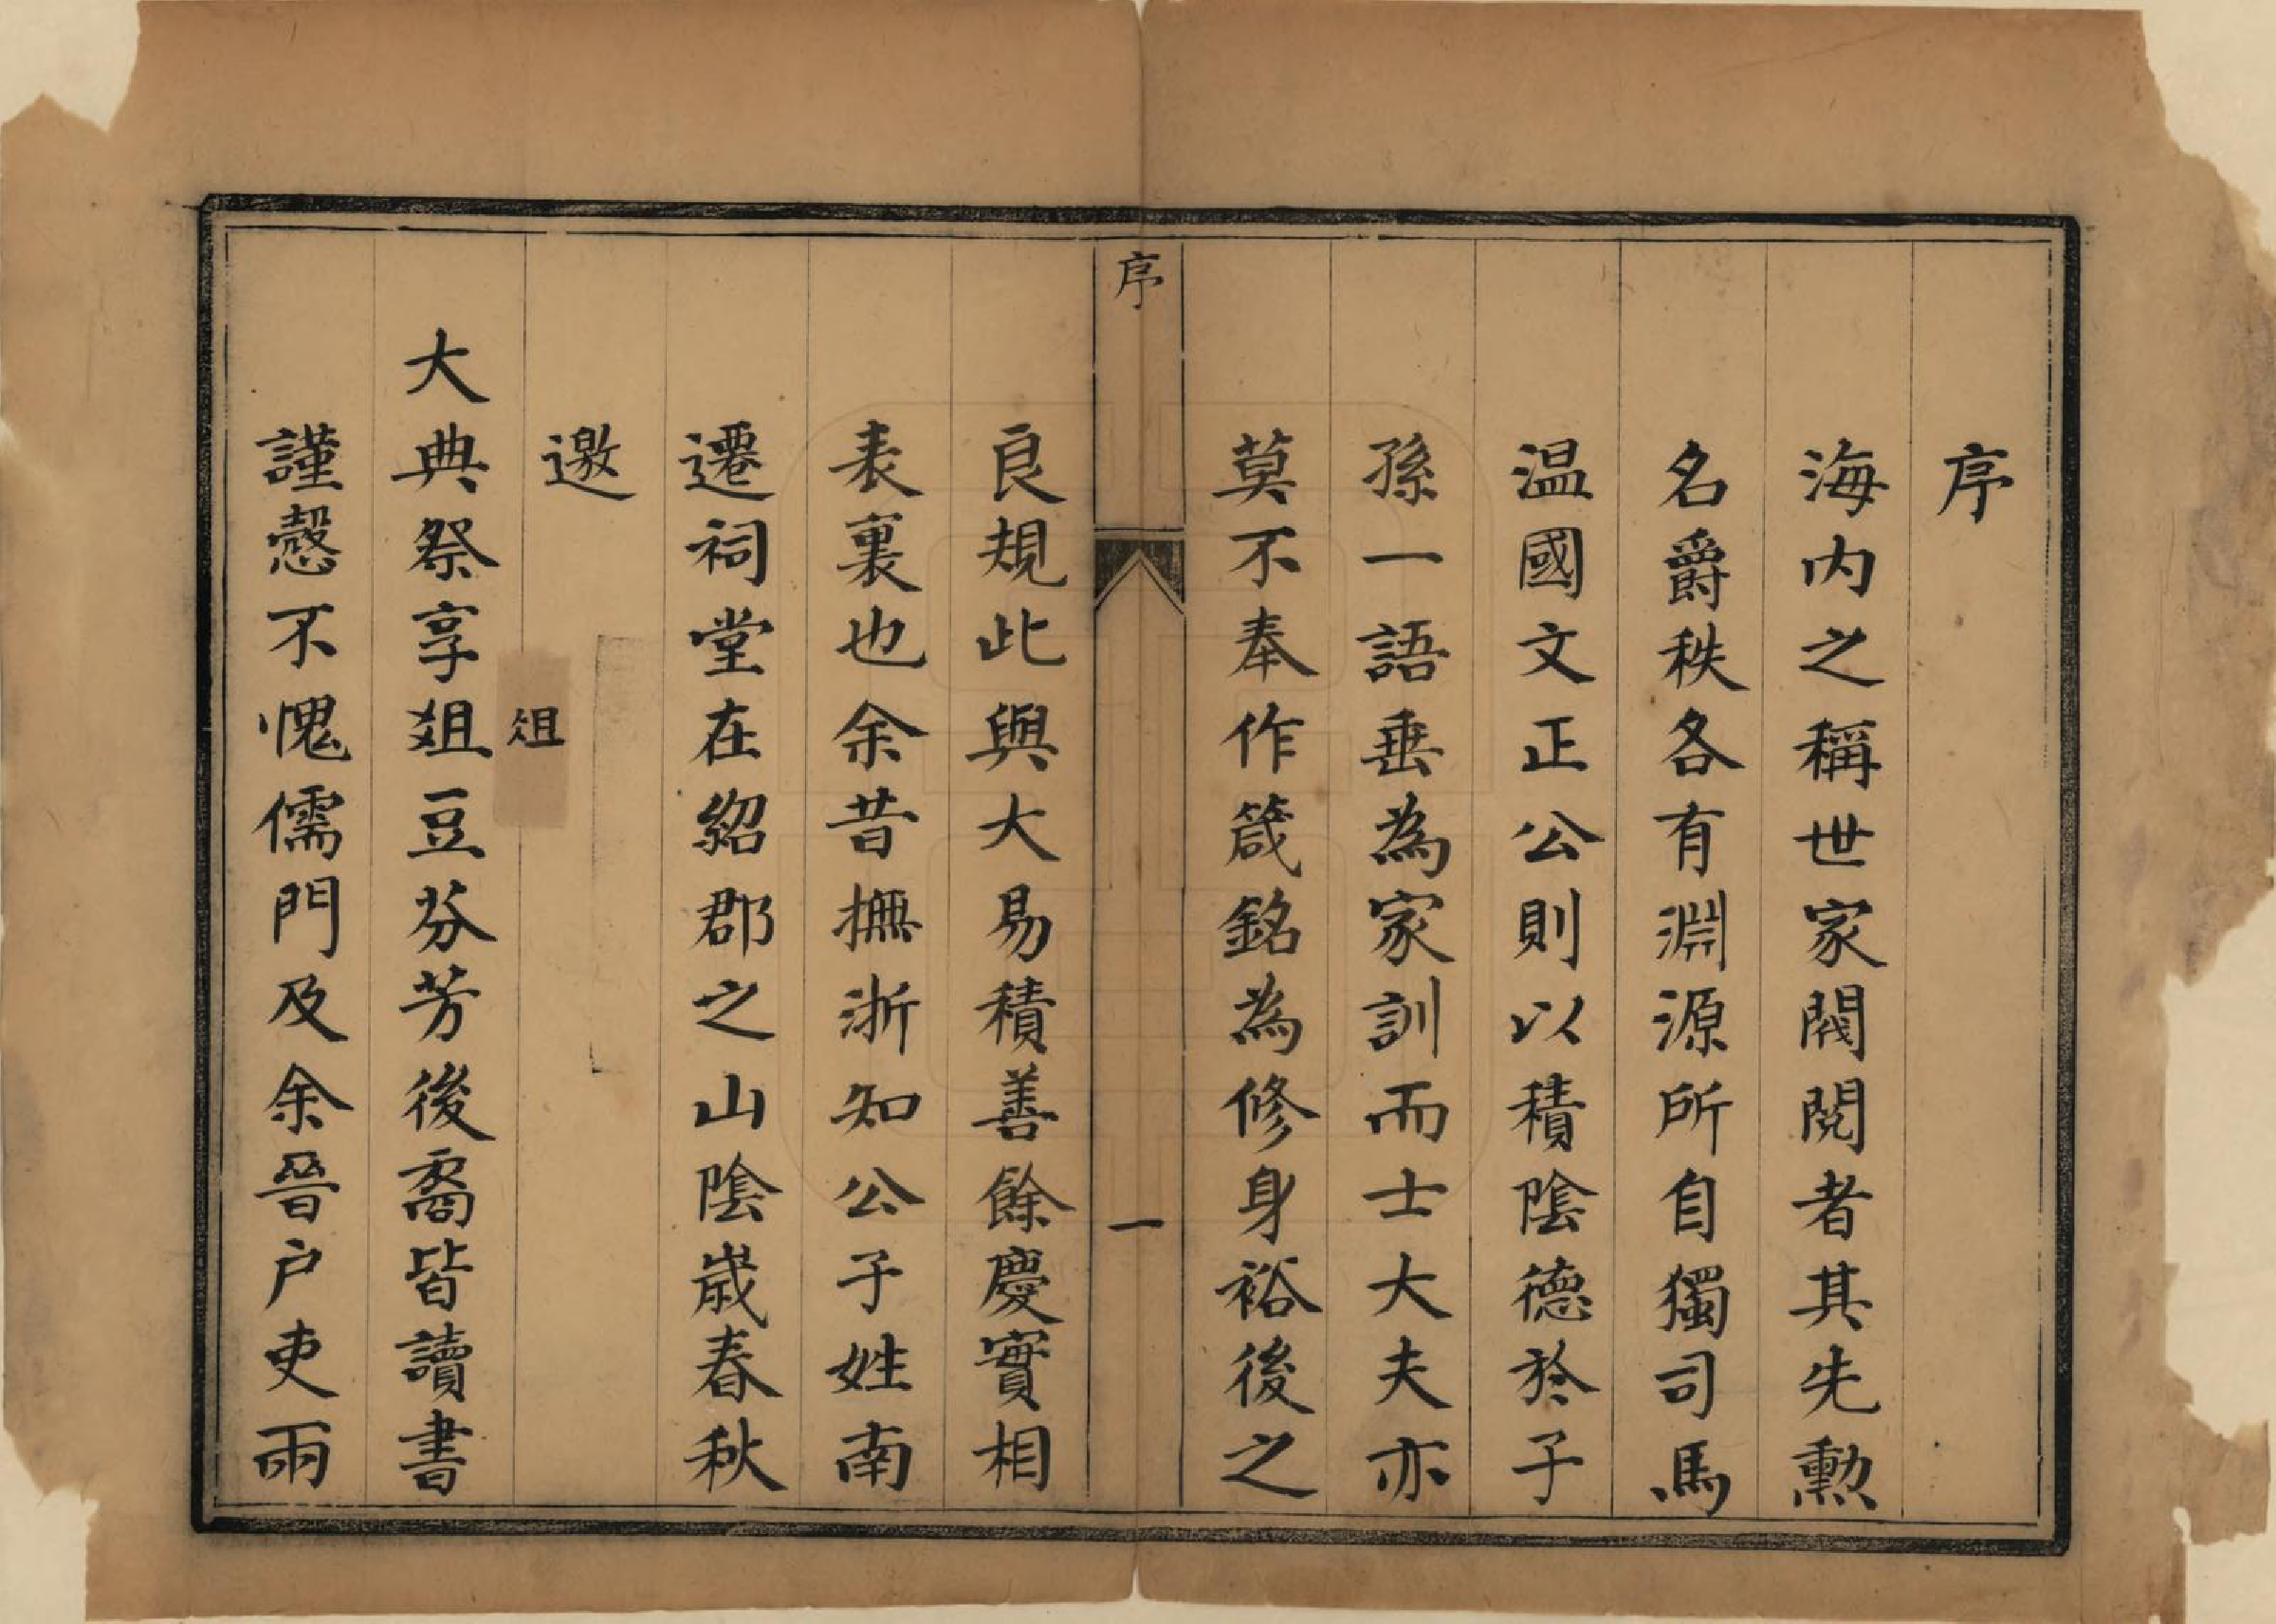 序
海内之稱世家閥閱者其先勲
名爵秩各有淵源所自獨司馬
温國文正公則以積隂德於子
孫一語垂為家訓而士大夫亦
莫不奉作箴銘為修身裕後之
序
一
良規此與大易積善餘慶實相
表裏也余昔撫浙知公子姓南
遷祠堂在紹郡之山隂歳春秋
邀
俎
大典祭享俎豆芬芳後裔皆讀書
謹慤不愧儒門及余晉户吏兩